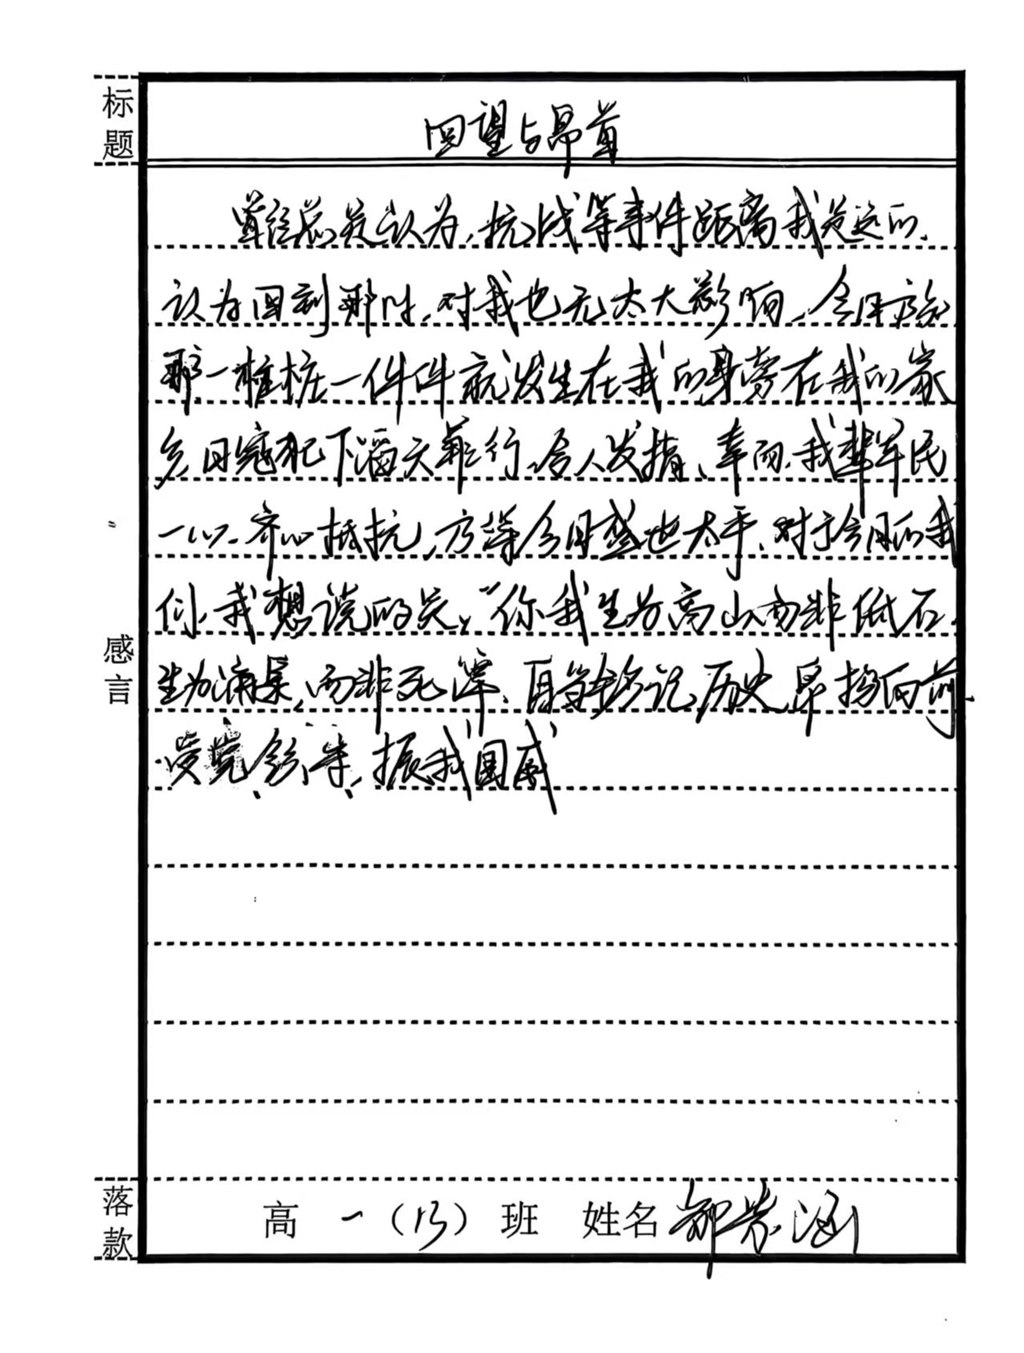 标题
回望与昂首
曾经总是认为,抗战等事件距离我是远的,
认为回到那时,对我也无太大影响,今日方知
那一桩桩一件件就发生在我的身旁在我的家
乡,日寇犯下滔天罪行,令人发指,幸而,我辈军民
一心,齐心抵抗,方得今日盛世太平,对于今日的我
们,我想说的是:“你我生为高山而非低石,
生为满,而非死潭,自当铭记历史昂扬向前
受党,振我国威
感言
落款
高一(13)班 姓名 涵